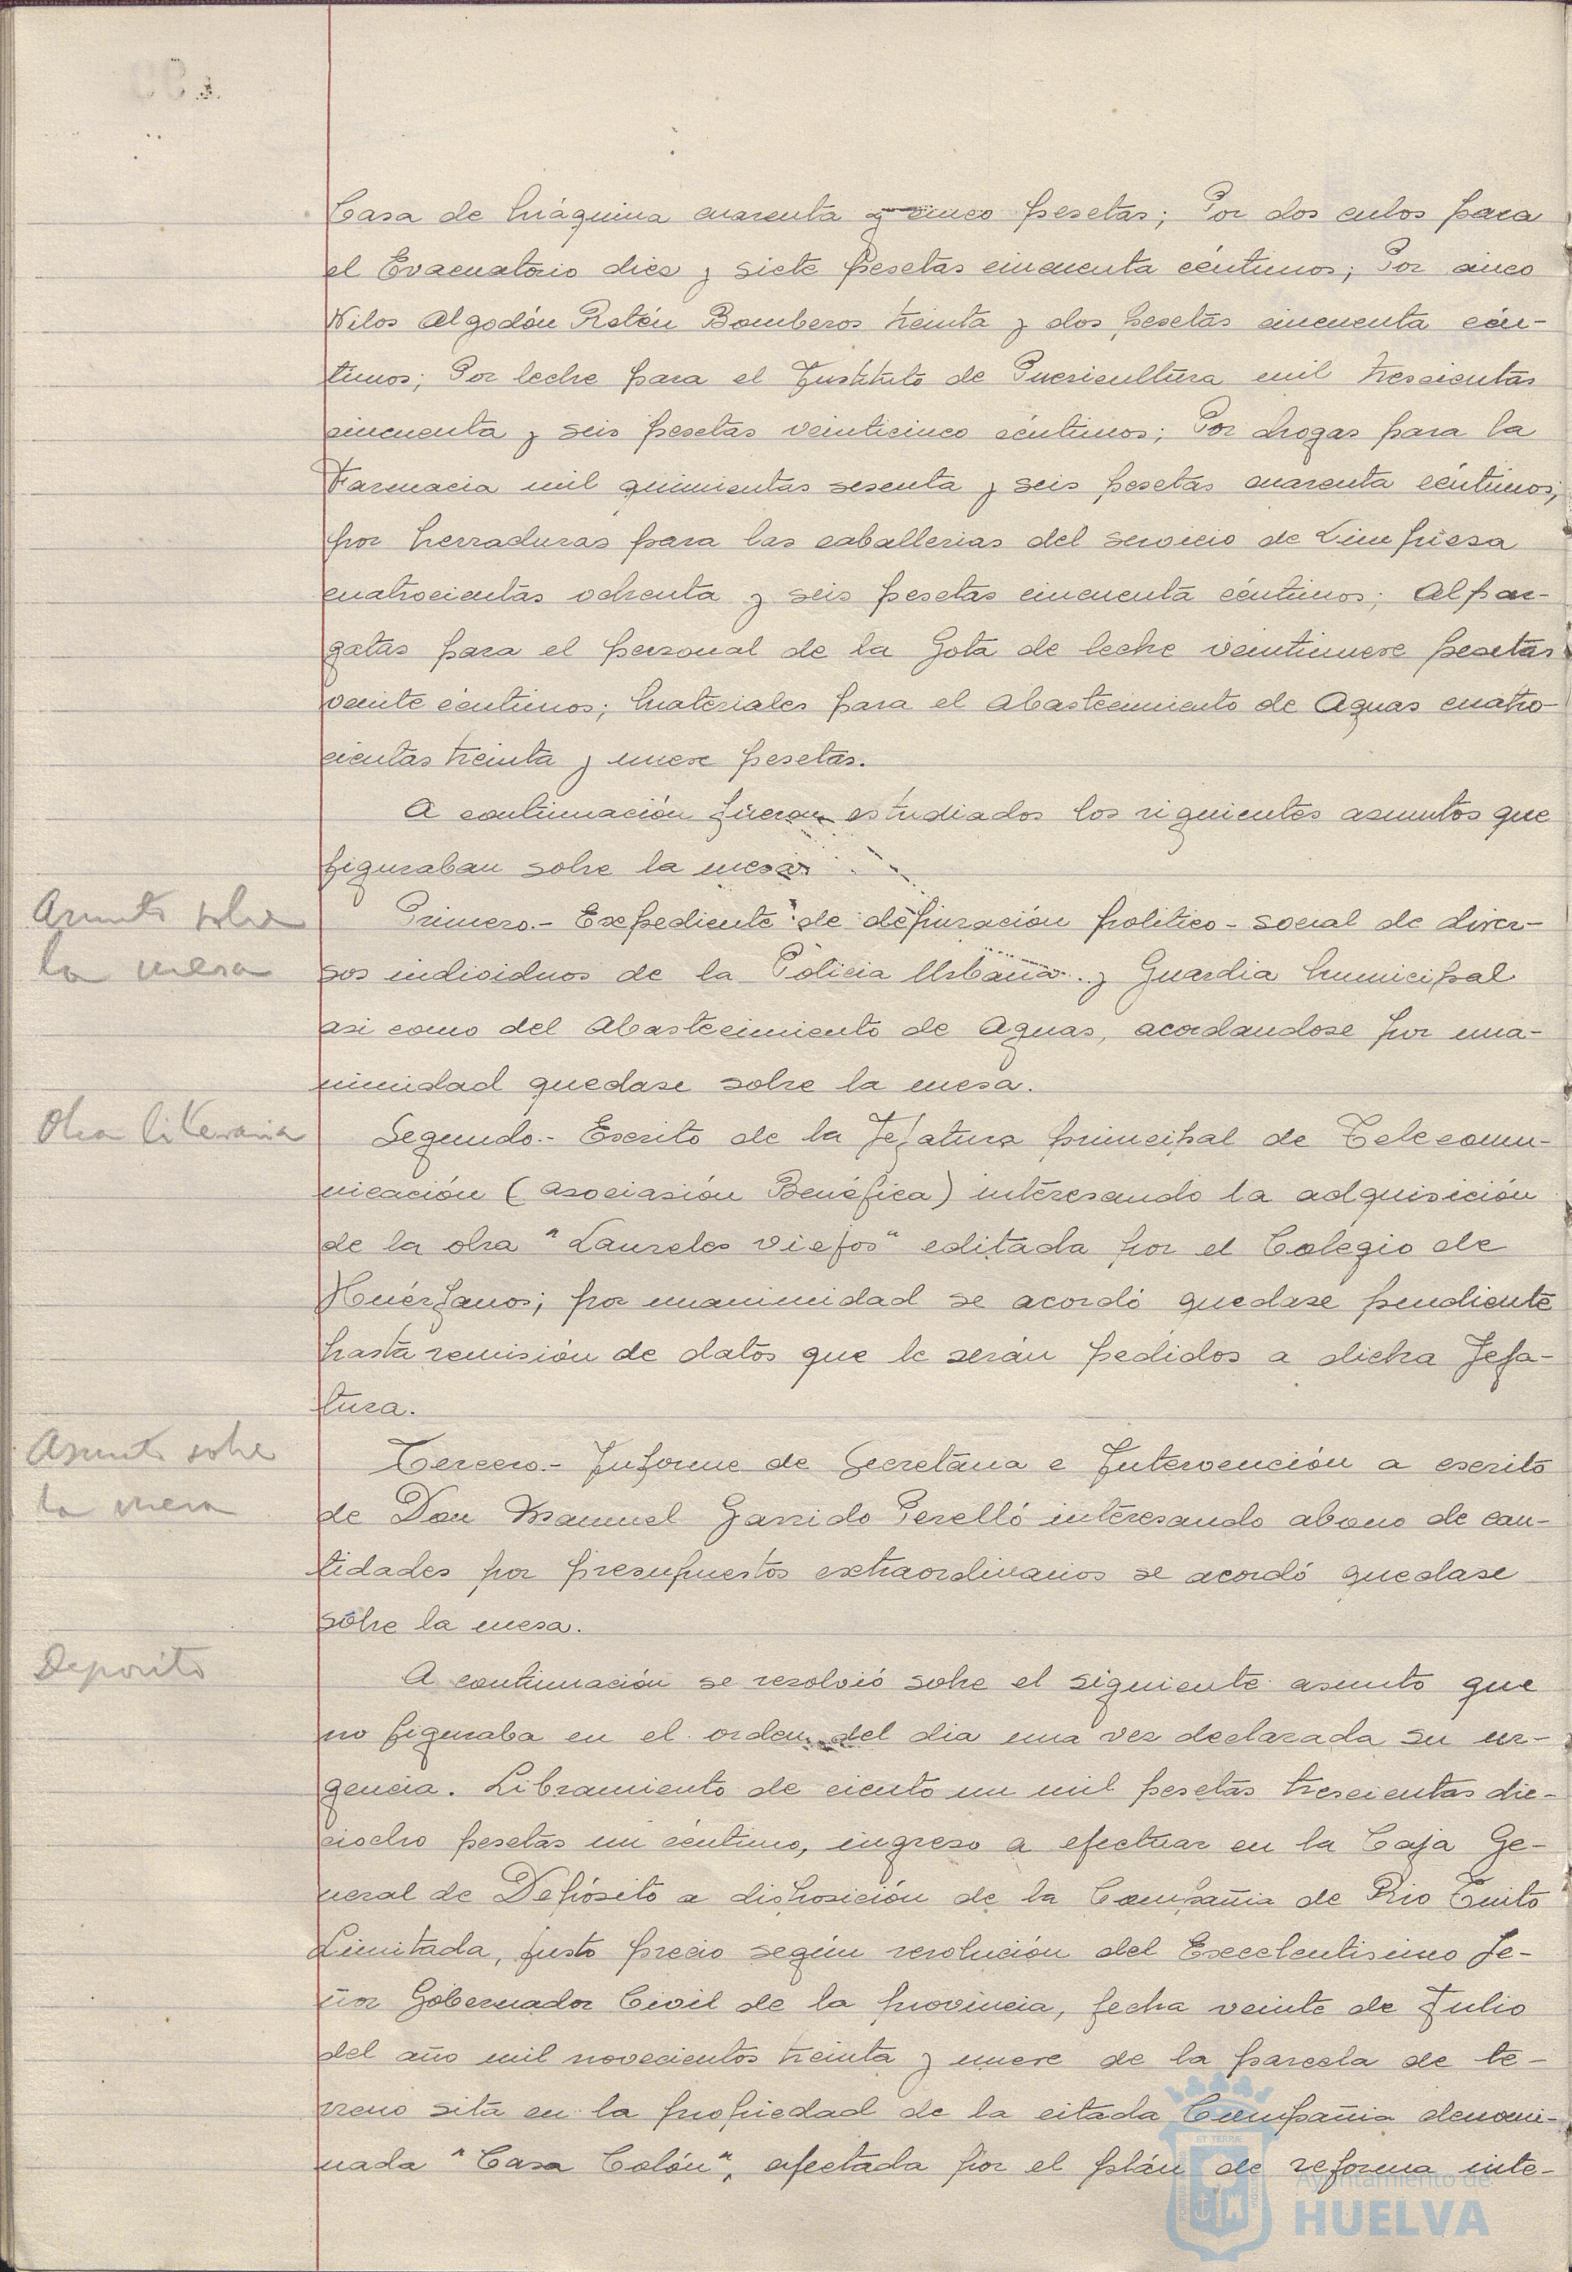 Casa de Máquina cuarenta y cinco pesetas; Por dos cubos para
el Evacuatorio diez y siete pesetas cincuenta céntimos; Por cinco
Kilos Algodón Retén Bomberos treinta y dos pesetas cincuenta cén-
timos; Por leche para el Instituto de Puericultura mil trescientas
cincuenta y seis pesetas veinticinco céntimos; Por drogas para la
Farmacia mil quinientas sesenta y seis pesetas cuarenta céntimos;
por herraduras para las caballerias del servicio de Limpieza
cuatrocientas ochenta y seis pesetas cincuenta céntimos; Alpar-
gatas para el personal de la Gota de leche veintinueve pesetas
veinte céntimos; Materiales para el Abastecimiento de Aguas cuatro-
cientas treinta y nueve pesetas.
A continuación fueron estudiados los siguientes asuntos que
figuraban sobre la mesa
Asunto sobre
la mesa
Primero.- Expediente de depuración politico-social de diver-
sos individuos de la Policia Urbana y Guardia Municipal
asi como del Abastecimiento de Aguas, acordandose por una-
nimidad quedase sobre la mesa.
Obra literaria
Segundo.- Escrito de la Jefatura principal de Telecomu-
nicación (Asociasión Benéfica) interesando la adquisición
de la obra "Laureles viejos" editada por el Colegio de
Huérfanos; por unanimidad se acordó quedase pendiente
hasta remisión de datos que le serán pedidos a dicha Jefa-
tura.
Asunto sobre
la mesa
Tercero.- Informe de Secretaria e Intervención a escrito
de Don Manuel Garrido Perelló interesando abono de can-
tidades por presupuestos extraordinarios se acordó quedase
sobre la mesa.
Deposito
A continuación se resolvió sobre el siguiente asunto que
no figuraba en el orden del dia una vez declarada su ur-
gencia. Libramiento de ciento un mil pesetas trescientas die-
ciocho pesetas un céntimo, ingreso a efectuar en la Caja Ge-
neral de Depósito a disposición de la Compañia de Rio Tinto
Limitada, justo precio según resolución del Excelentisimo Se-
ñor Gobernador Civil de la provincia, fecha veinte de Julio
del año mil novecientos treinta y nueve de la parcela de te-
rreno sita en la propiedad de la citada Compañia denomi-
nada "Casa Colón", afectada por el plán de reforma inte-
Ayuntamiento de
HUELVA